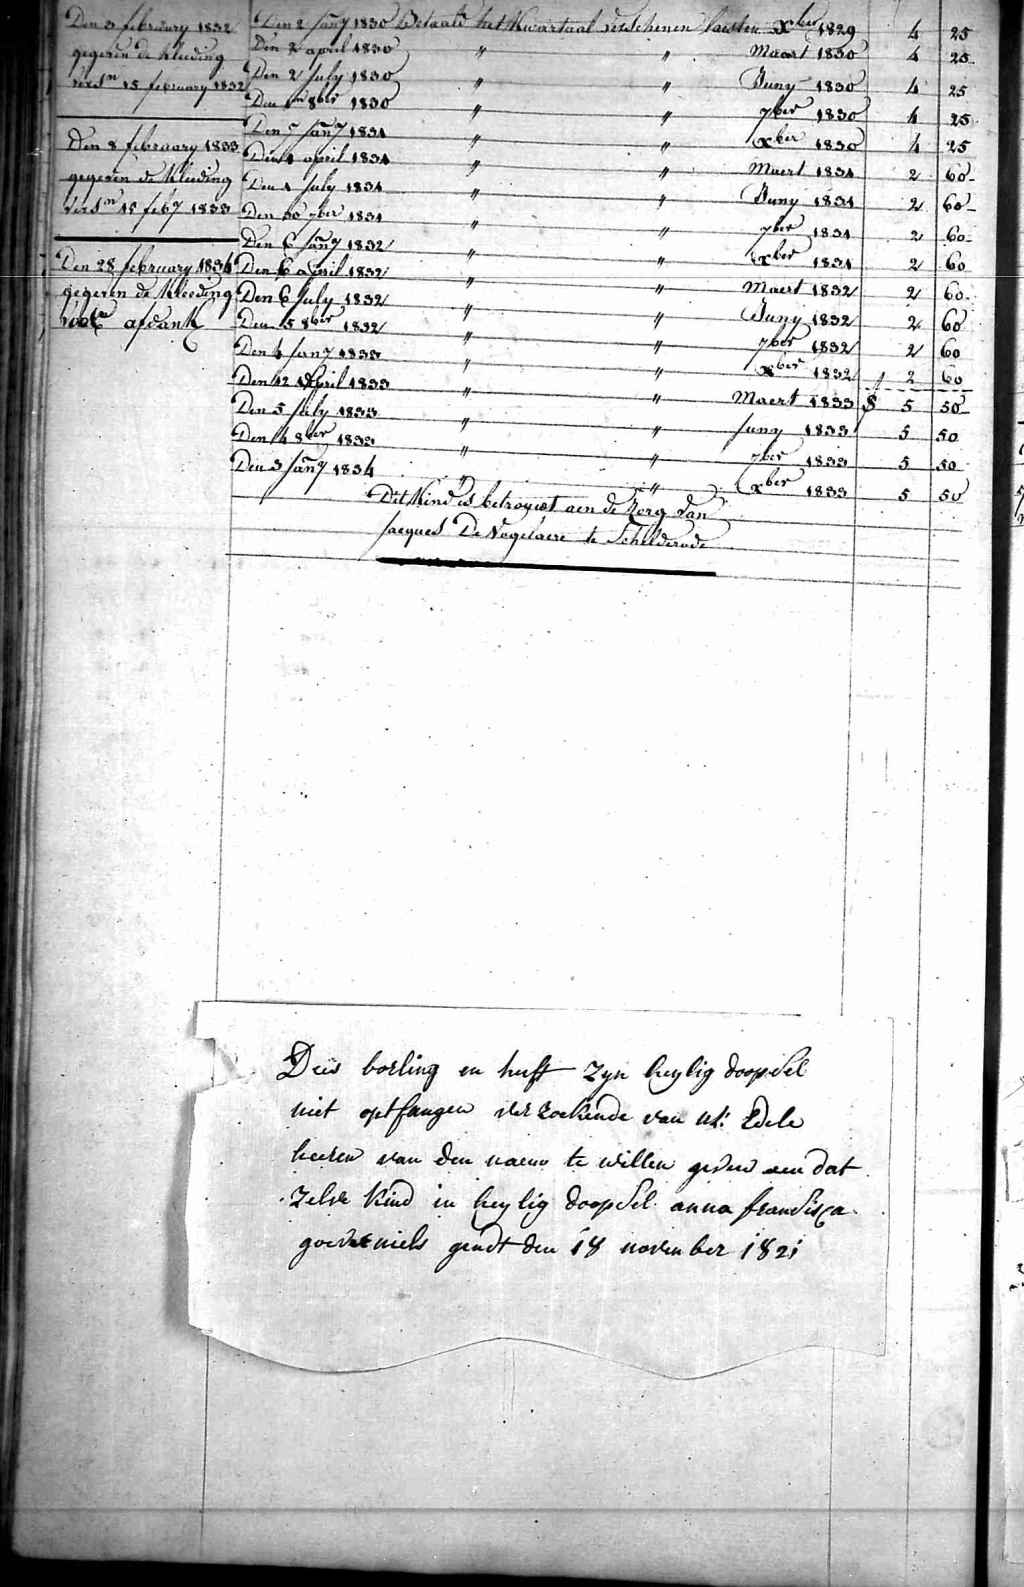 Den 3 february 1832
gegeven de Kleeding
vers.n 15 february 1832
Den 8 february 1833
gegeven de Kleeding
vers.n 15 feb.y 1833
Den 28 february 1834
gegeven de Kleeding
afdank
Den 2 Jan.y 1830 Betaald het Kwartaal verschenen laesten Xber 1829 4 25
Den 2 april 1830 " " Maart 1830 4 25
Den 2 July 1830 " " Juny 1830 4 25
Den 8ber 1830 " " 7ber 1830 4 25
Den 7 Jan.y 1831 " " Xber 1830 4 25
Den 1 april 1831 " " Maert 1831 2 60
Den 1 July 1831 " " Juny 1831 2 60
Den 30 7ber 1831 " " 7ber 1831 2 60
Den 6 Jan.y 1832 " " Xber 1831 2 60
Den 6 april 1832 " " Maert 1832 2 60
Den 6 July 1832 " " Juny 1832 2 60
Den 5 8ber 1832 " " 7ber 1832 2 60
Den 4 Jan.y 1833 " " Xber 1832 2 60
Den 12 April 1833 " " Maert 1833 5 50
Den 5 July 1833 " " Juny 1833 5 50
Den 4 8ber 1833 " " 7ber 1833 5 50
Den 3 Jan.y 1834 " " Xber 1833 5 50
Dit Kind is betrouwt aen de Zorg van
Jacques De Vogelaere te Schelderode
Dees borling en heeft Zyn heylig doopsel
niet optfangen verzoekende van UE: Edele
heeren van den naem te willen geven aen dat
Zelve Kind in heylig doopsel anna fransisca
goeveniels gendt den 18 november 1821